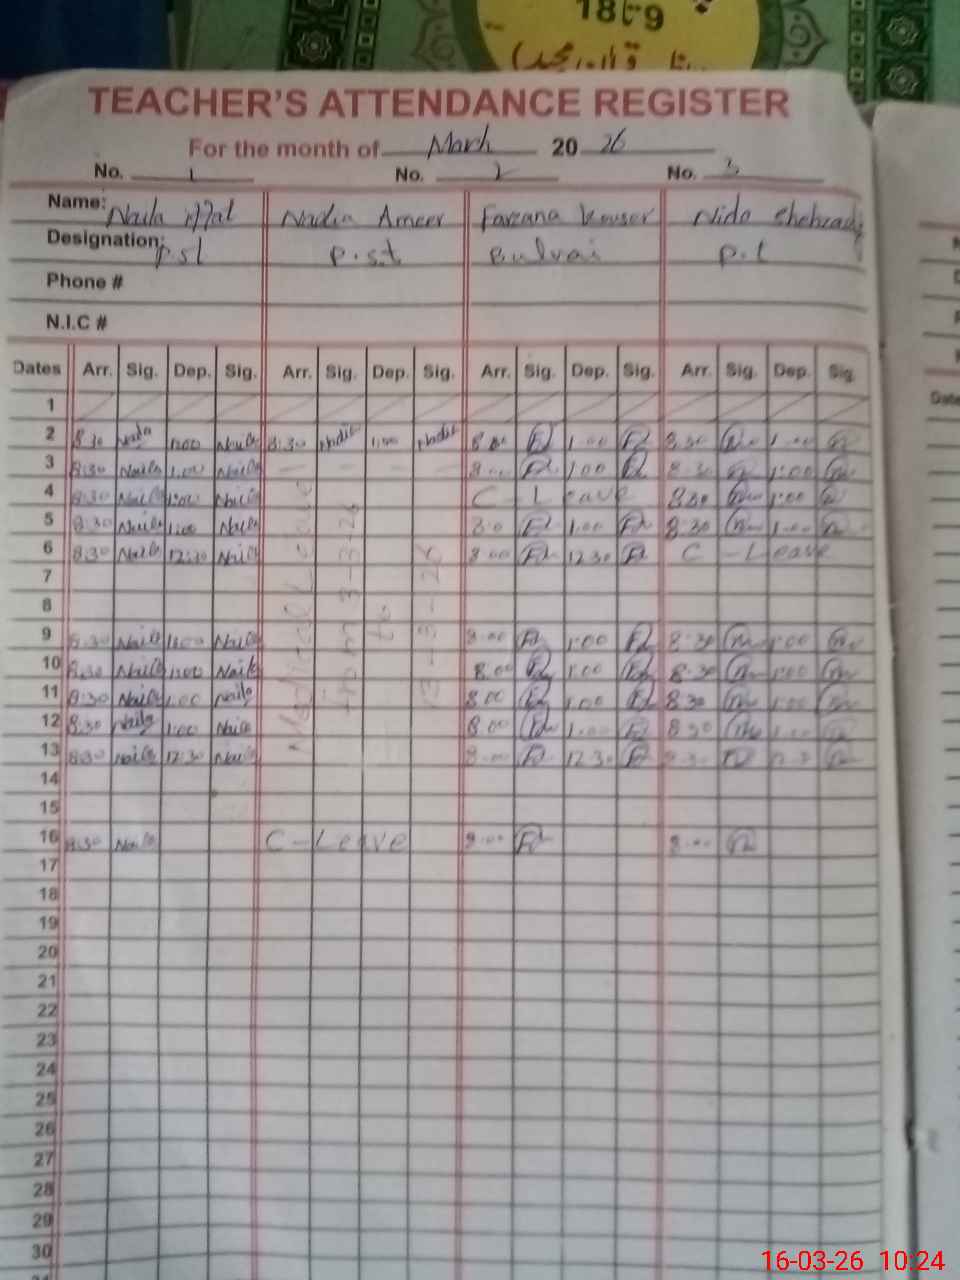 1859
TEACHER'S ATTENDANCE REGISTER
For the month of March 2026
No. 1 No. 2 No. 3
Name: Naila Nadia Ameer Farzana Kousar Nida Shehzadi
Designation: P.S.T P.S.T P.T
Phone #
N.I.C #
Dates Arr. Sig. Dep. Sig. Arr. Sig. Dep. Sig. Arr. Sig. Dep. Sig. Arr. Sig. Dep. Sig.
1
2 8:30 Naila 1:00 Naila 8:30 Nadia 1:00 Nadia 8:00 1:00 8:30 1:00
3 8:30 Naila 1:00 Naila 8:00 1:00 8:30 1:00
4 8:30 Naila 1:00 Naila C-Leave 8:30 1:00
5 8:30 Naila 1:00 Naila 8:00 1:00 8:30 1:00
6 8:30 Naila 12:30 Naila 8:00 12:30 C-Leave
7
8
9 8:30 Naila 1:00 Naila 8:00 1:00 8:30 1:00
10 8:30 Naila 1:00 Naila 8:00 1:00 8:30 1:00
11 8:30 Naila 1:00 Naila 8:00 1:00 8:30 1:00
12 8:30 Naila 1:00 Naila 8:00 1:00 8:30 1:00
13 8:30 Naila 12:30 Naila 8:00 12:30 8:30
Medical Leave
from 3-3-26
to
13-3-26
14
15
16 8:30 Naila C-Leave 8:00 8:00
17
18
19
20
21
22
23
24
25
26
27
28
29
30
Date
16-03-26 10:24